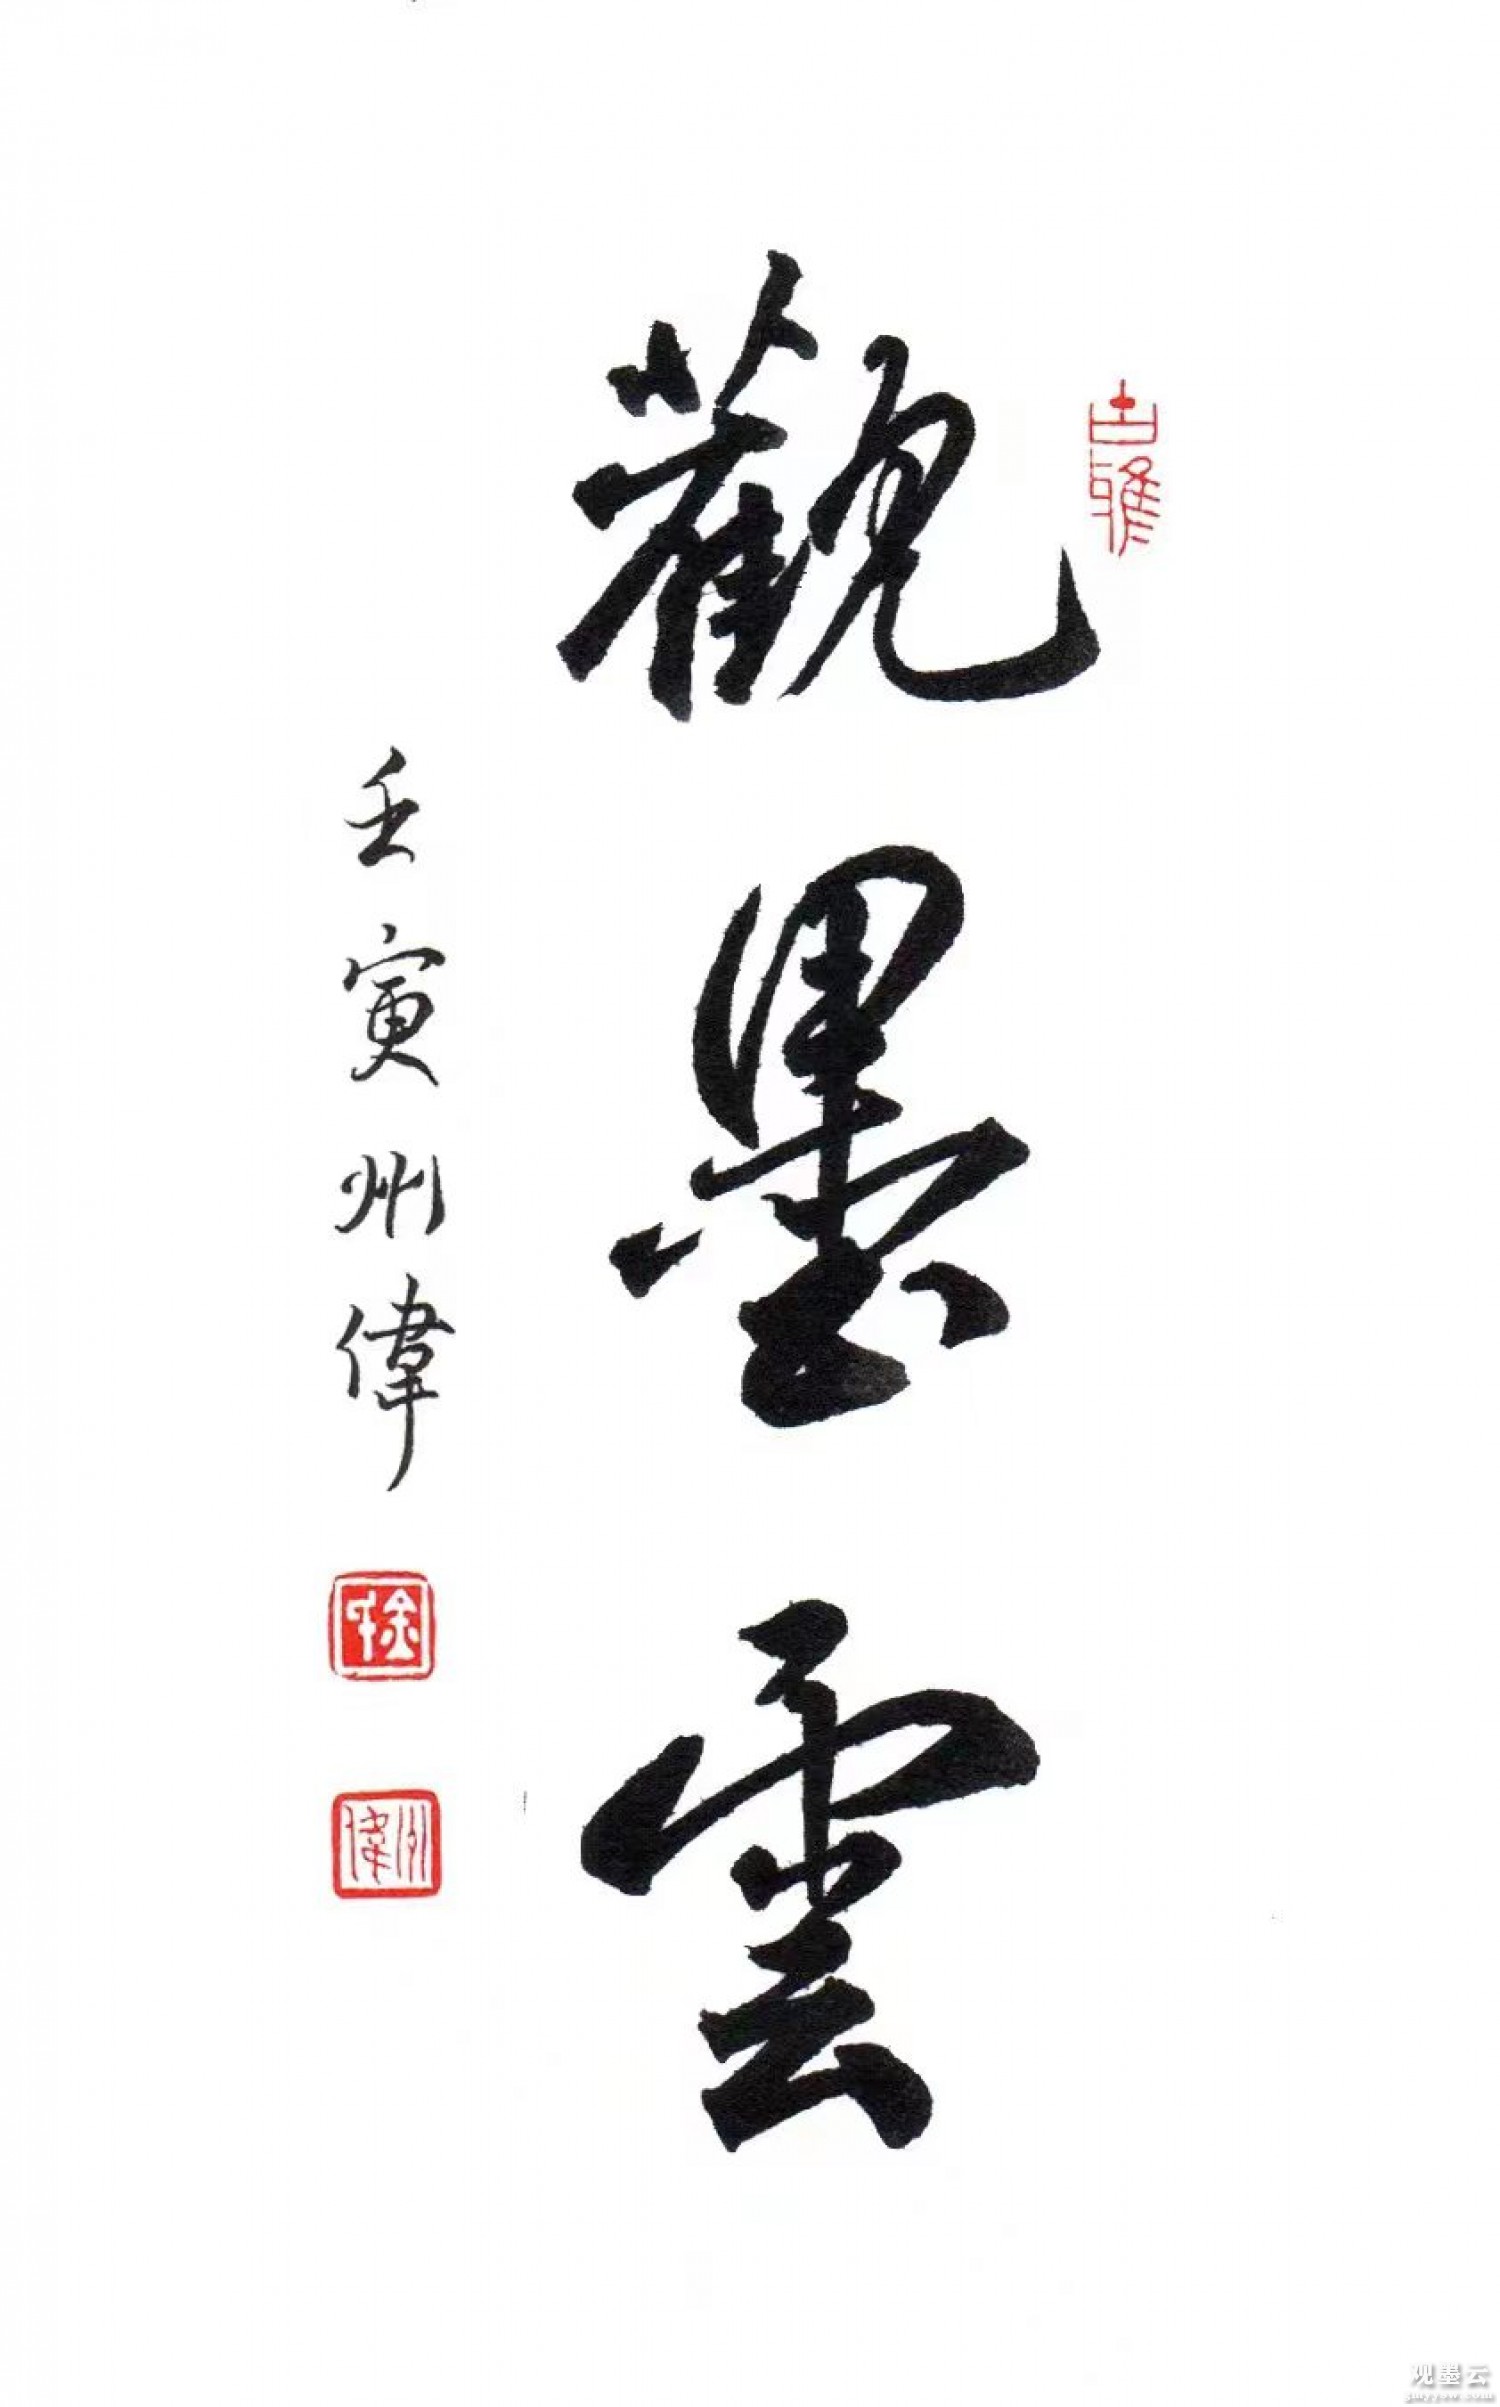 古雅
觀墨雲
壬寅州偉
徐
州偉
观墨云
gmyyun.com